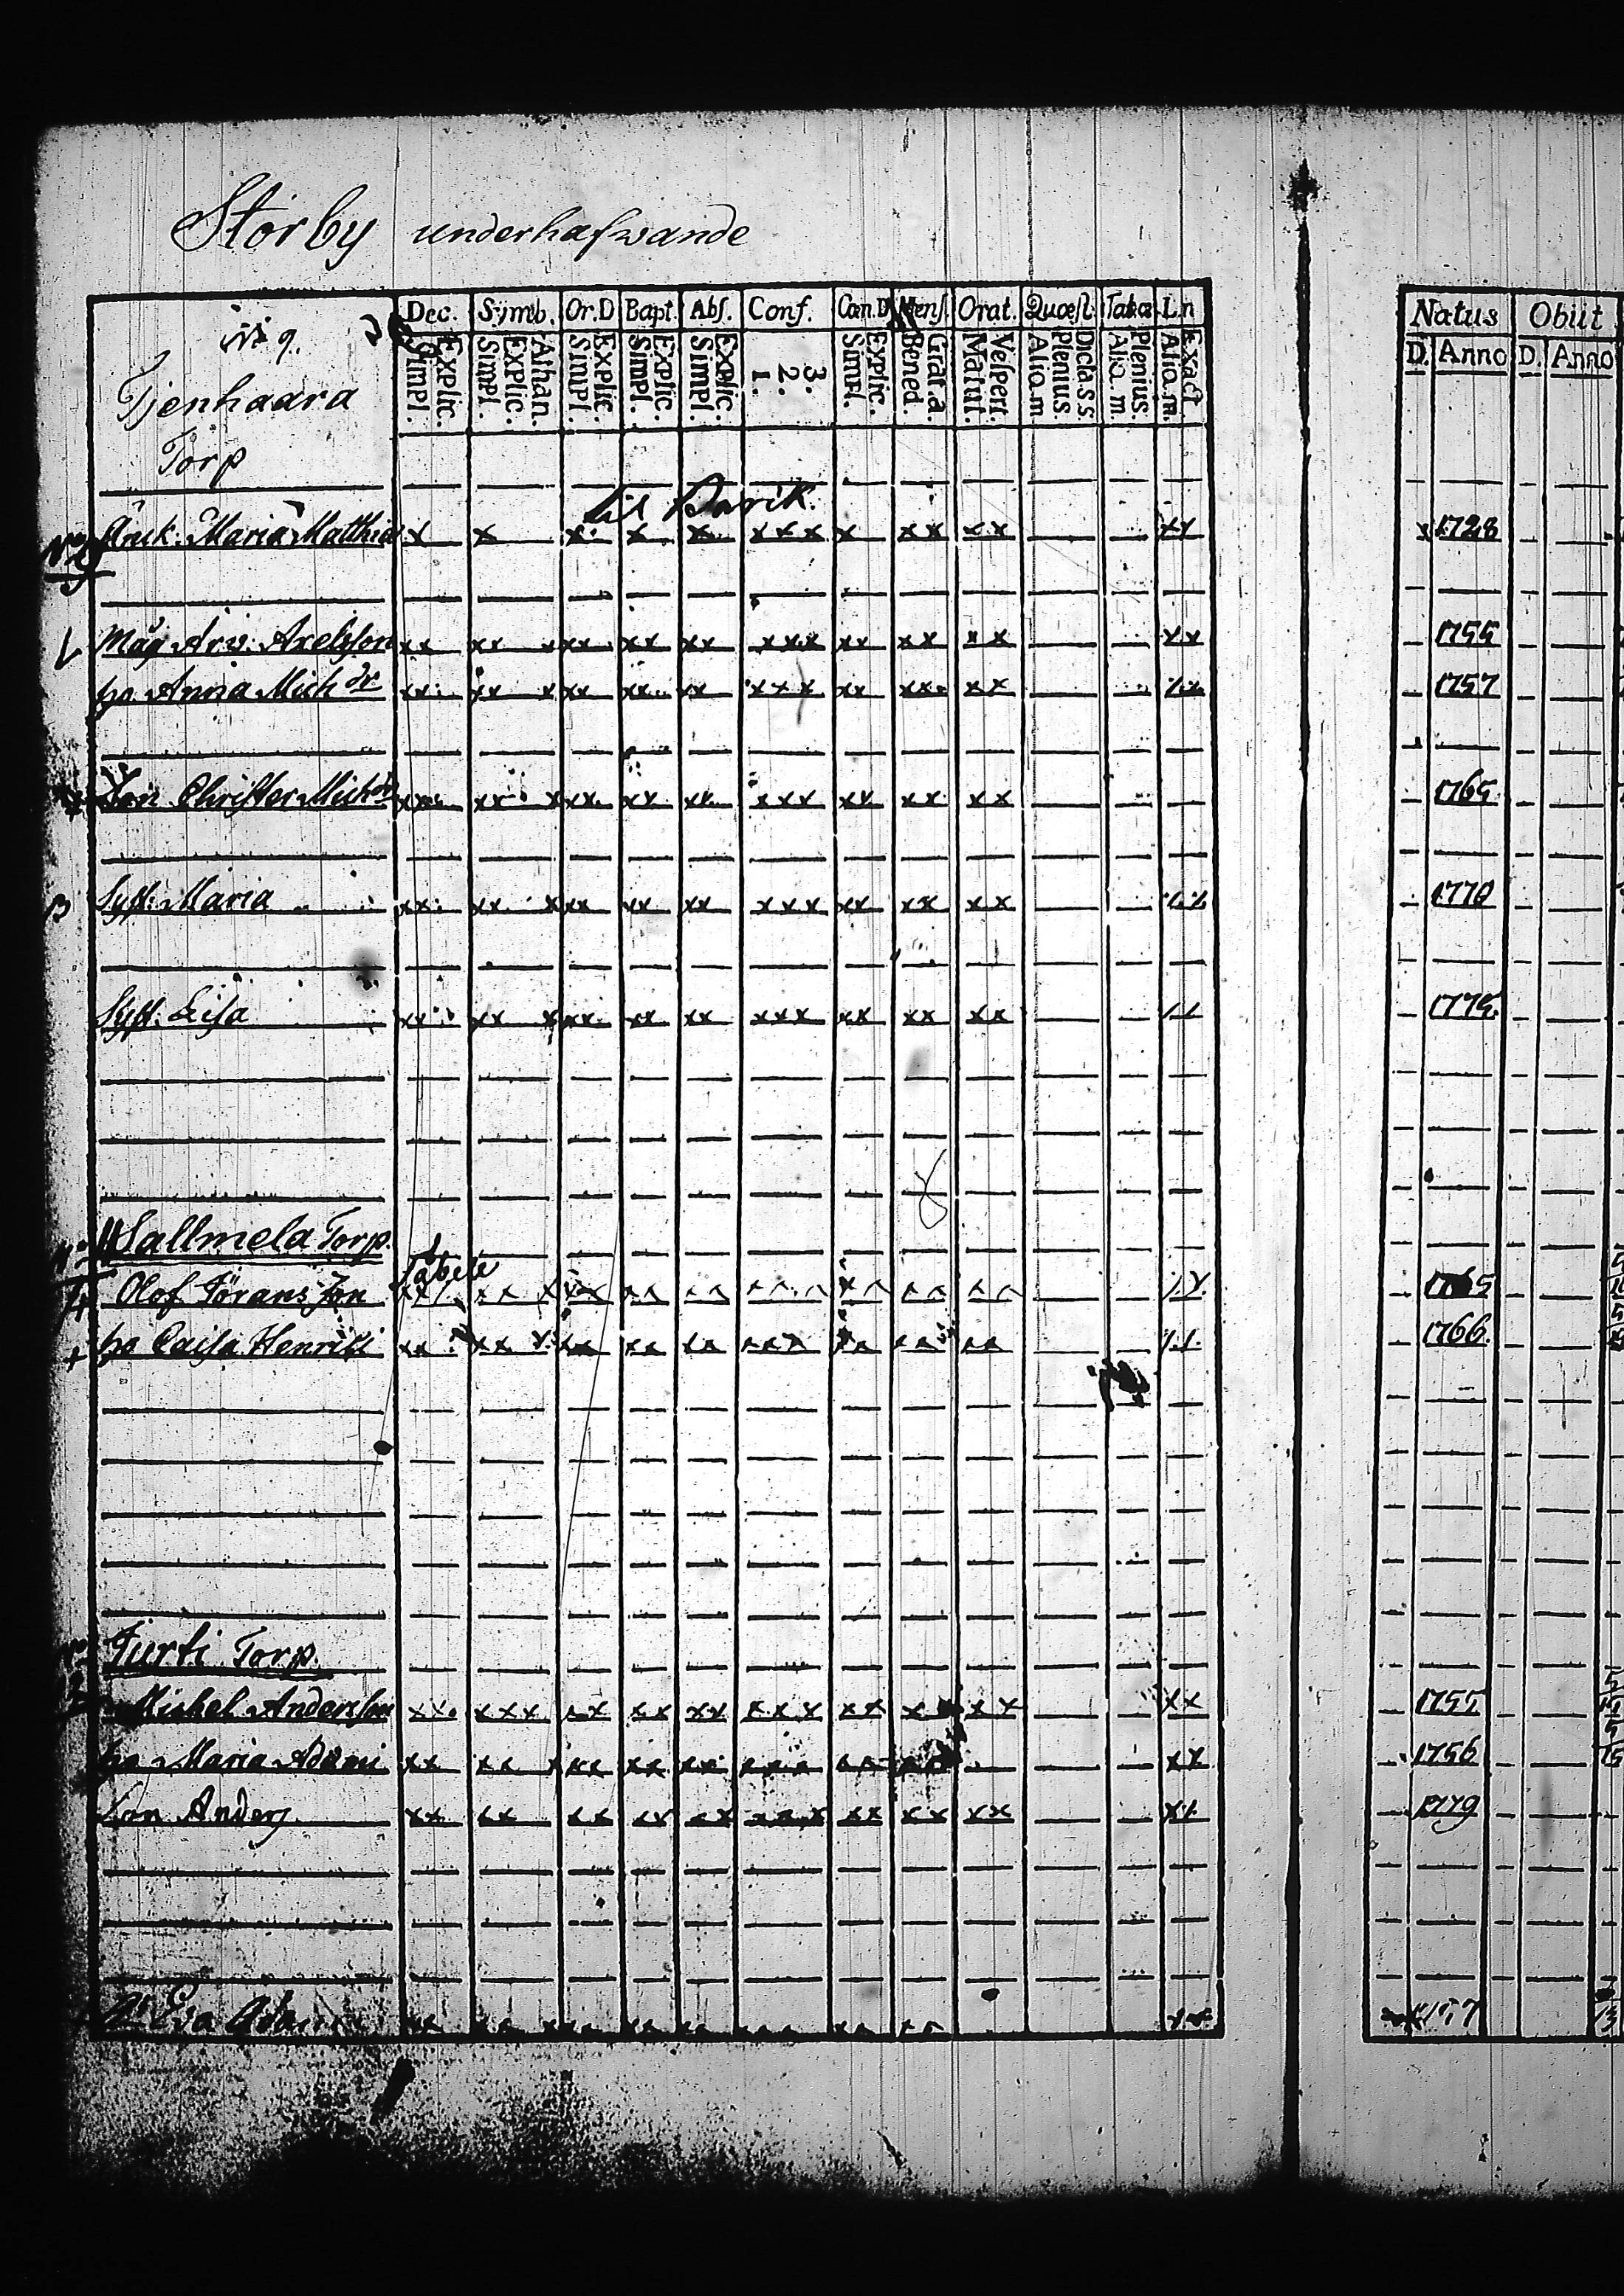 Storby underhafwande
No 9. Dec. Symb. Or.D Bapt. Abs. Conf. Cœn.D Mens. Orat. Quæst. Tabœ L.n Natus Obiit
Explic. Simpl. Athan. Explic. Simpl. Explic. Simpl. Explic. Simpl. Explic. Simpl. 3. 2. 1. Explic. Simpl. Grat.a Bened. Vespert. Matut. Dicta.s.s. Plenius Alio.m Plenius. Alio.m. Exact Alio.m. D. Anno D. Anno
Tjenhaara
Torp
Enk. Maria Matthiæ x x x x x x x x x x x x x x x 1728
Måg Arv. Axelsson xx xx x xx xx xx xxx xx xx xx xx 1755
ho. Anna Mich dr xx xx x xx xx xx xxx xx xx xx xx 1757
Son Christer Mich xx xx x xx xx xx xxx xx xx xx 1765
Syst: Maria xx xx x xx xx xx xxx xx xx xx xx 1770
Syst: Leisa xx xx x xx xx xx xxx xx xx xx 1775
Sallmela Torp.
Olof Jörans Son xx xx x xx xx xx xxx xx xx xx 1765
ho Caisa Henrici xx xx x xx xx xx xxx xx xx xx 1766.
Turti Torp.
Michel Andersson xx xxx xx xx xx xxx xx x xx xx 1755
ho Maria Adami xx xx x xx xx xx xxx xx xx xx 1756
Son Anders xx xx xx xx xx xxx xx xx xx xx 1779
Eva Adami